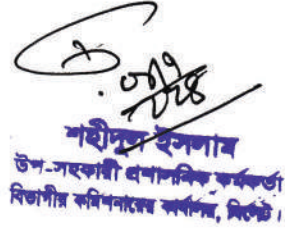 শহীদুল ইসলাম
উপ-সহকারী প্রশাসনিক কর্মকর্তা
বিভাগীয় কমিশনারের কার্যালয়, সিলেট।